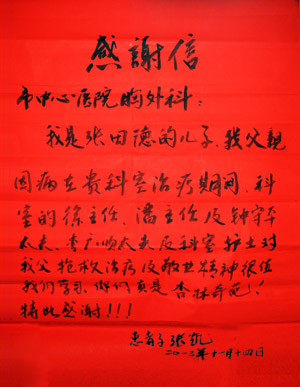 感謝信
市中心医院胸外科：
我是张田德的儿子，我父親
因病在贵科室治疗期间，科
室的徐主任、潘主任及钟
大夫、李广大夫及科室护士对
我父抢救治疗及敬业精神很值
我们学习，你们真是杏林奇芭！！
特此感谢！！！
患者子张凯
二〇一二年十一月十四日